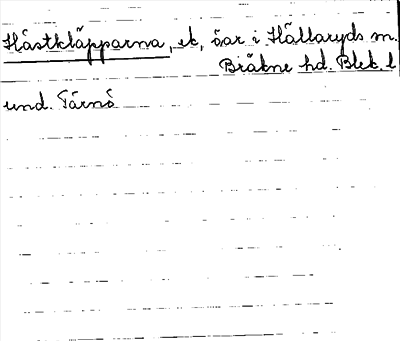 Hästkläpparna, ek, öar i Hällaryds sn.
Bräkne hd. Blek. l
und. Tärnö